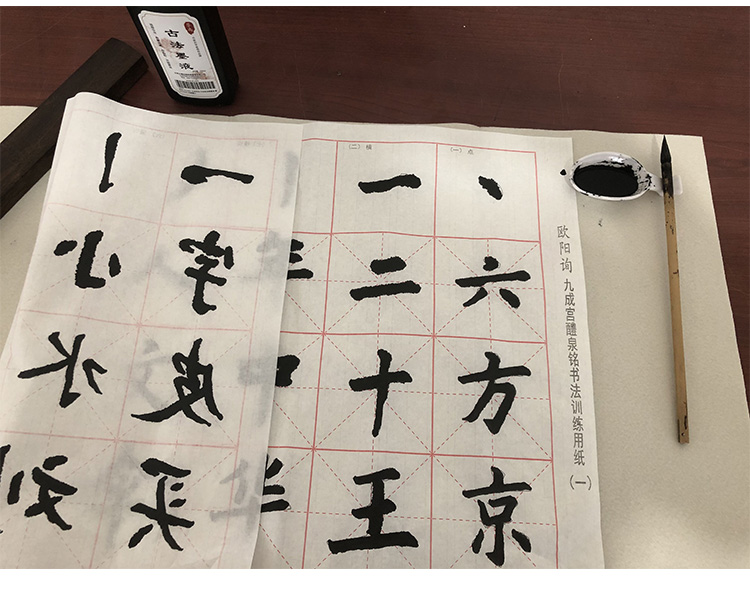 古法墨液
欧阳询 九成宫醴泉铭书法训练用纸(一)
(一) 点
丶六方京
(二) 横
一二十王
中华
乛字皮买
亅小水